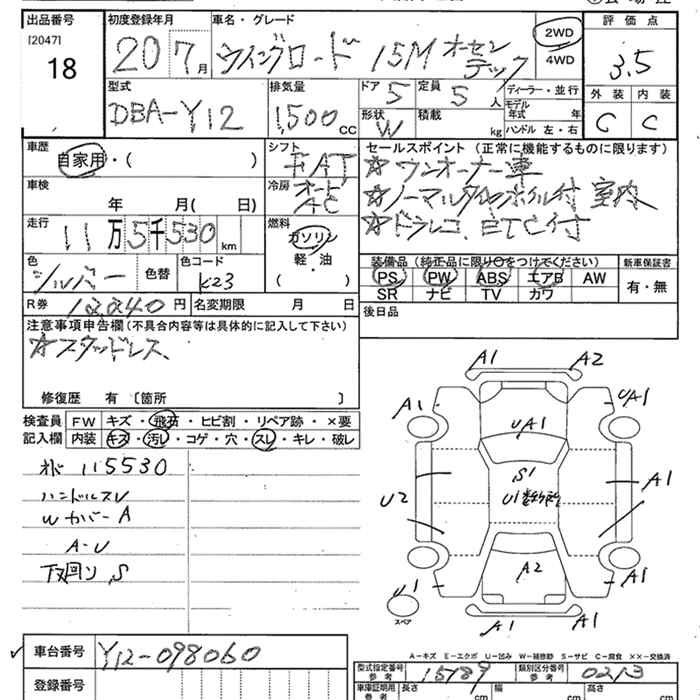 出品番号 初度登録年月 車名・グレード 評価点
[2047]
18
20 7月 ウイングロード 15M オーセンテック
2WD
4WD
3.5
型式 排気量 ドア 定員 ディーラー・並行 外装 内装
DBA-Y12 1,500 CC 5 5人 モデル年式 年
形状 積載
W kg ハンドル 左・右 C C
車歴 シフト セールスポイント(正常に機能するものに限ります)
自家用・( ) FAT ☆ワンオーナー車
車検 冷房 オート AC ☆ノーマルタイヤホイル付 室内
年 月( 日) ☆ドラレコ、ETC付
走行 燃料
11万5千530km ガソリン
軽・油
( )
装備品(純正品に限り○をつけてください) 新車保証書
色 色替 色コード PS PW ABS エアB AW 有・無
シルバー K23 SR ナビ TV カワ
R券 12,240円 名変期限 月 日 後日品
注意事項申告欄(不具合内容等は具体的に記入して下さい)
☆スタッドレス、
修復歴 有 〔箇所 〕
検査員 FW キズ・飛石・ヒビ割・リペア跡・×要
記入欄 内装 キズ・汚レ・コゲ・穴・スレ・キレ・破レ
115530
ハンドルスレ
Wカバー A
A-U
下廻り S
A1 A2
A1 UA1
UA1
S1
U2 U1数ヶ所 A1
A2
U1 A1
スペア A1 A1
A-キズ E-エクボ U-凹み W-補修跡 S-サビ C-腐食 ××-交換済
車台番号 Y12-098060
型式指定番号 参考 15189 類別区分番号 参考 0213
登録番号
車庫証明用 参考 長さ cm 幅 cm 高さ cm